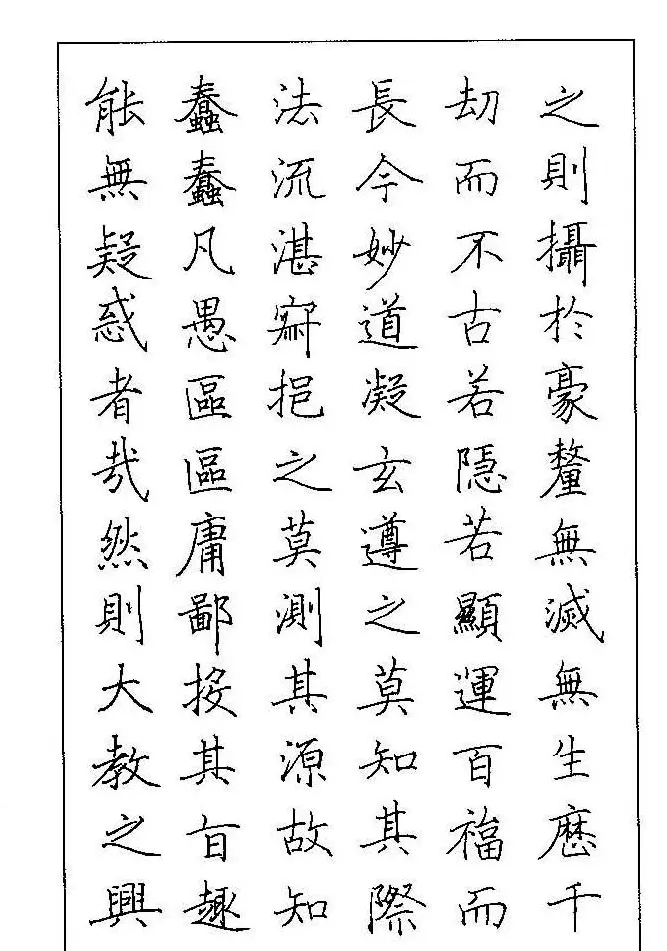 之則攝於豪釐無滅無生歷千
劫而不古若隱若顯運百福而
長今妙道凝玄遵之莫知其際
法流湛寂挹之莫測其源故知
蠢蠢凡愚區區庸鄙投其旨趣
能無疑惑者哉然則大教之興